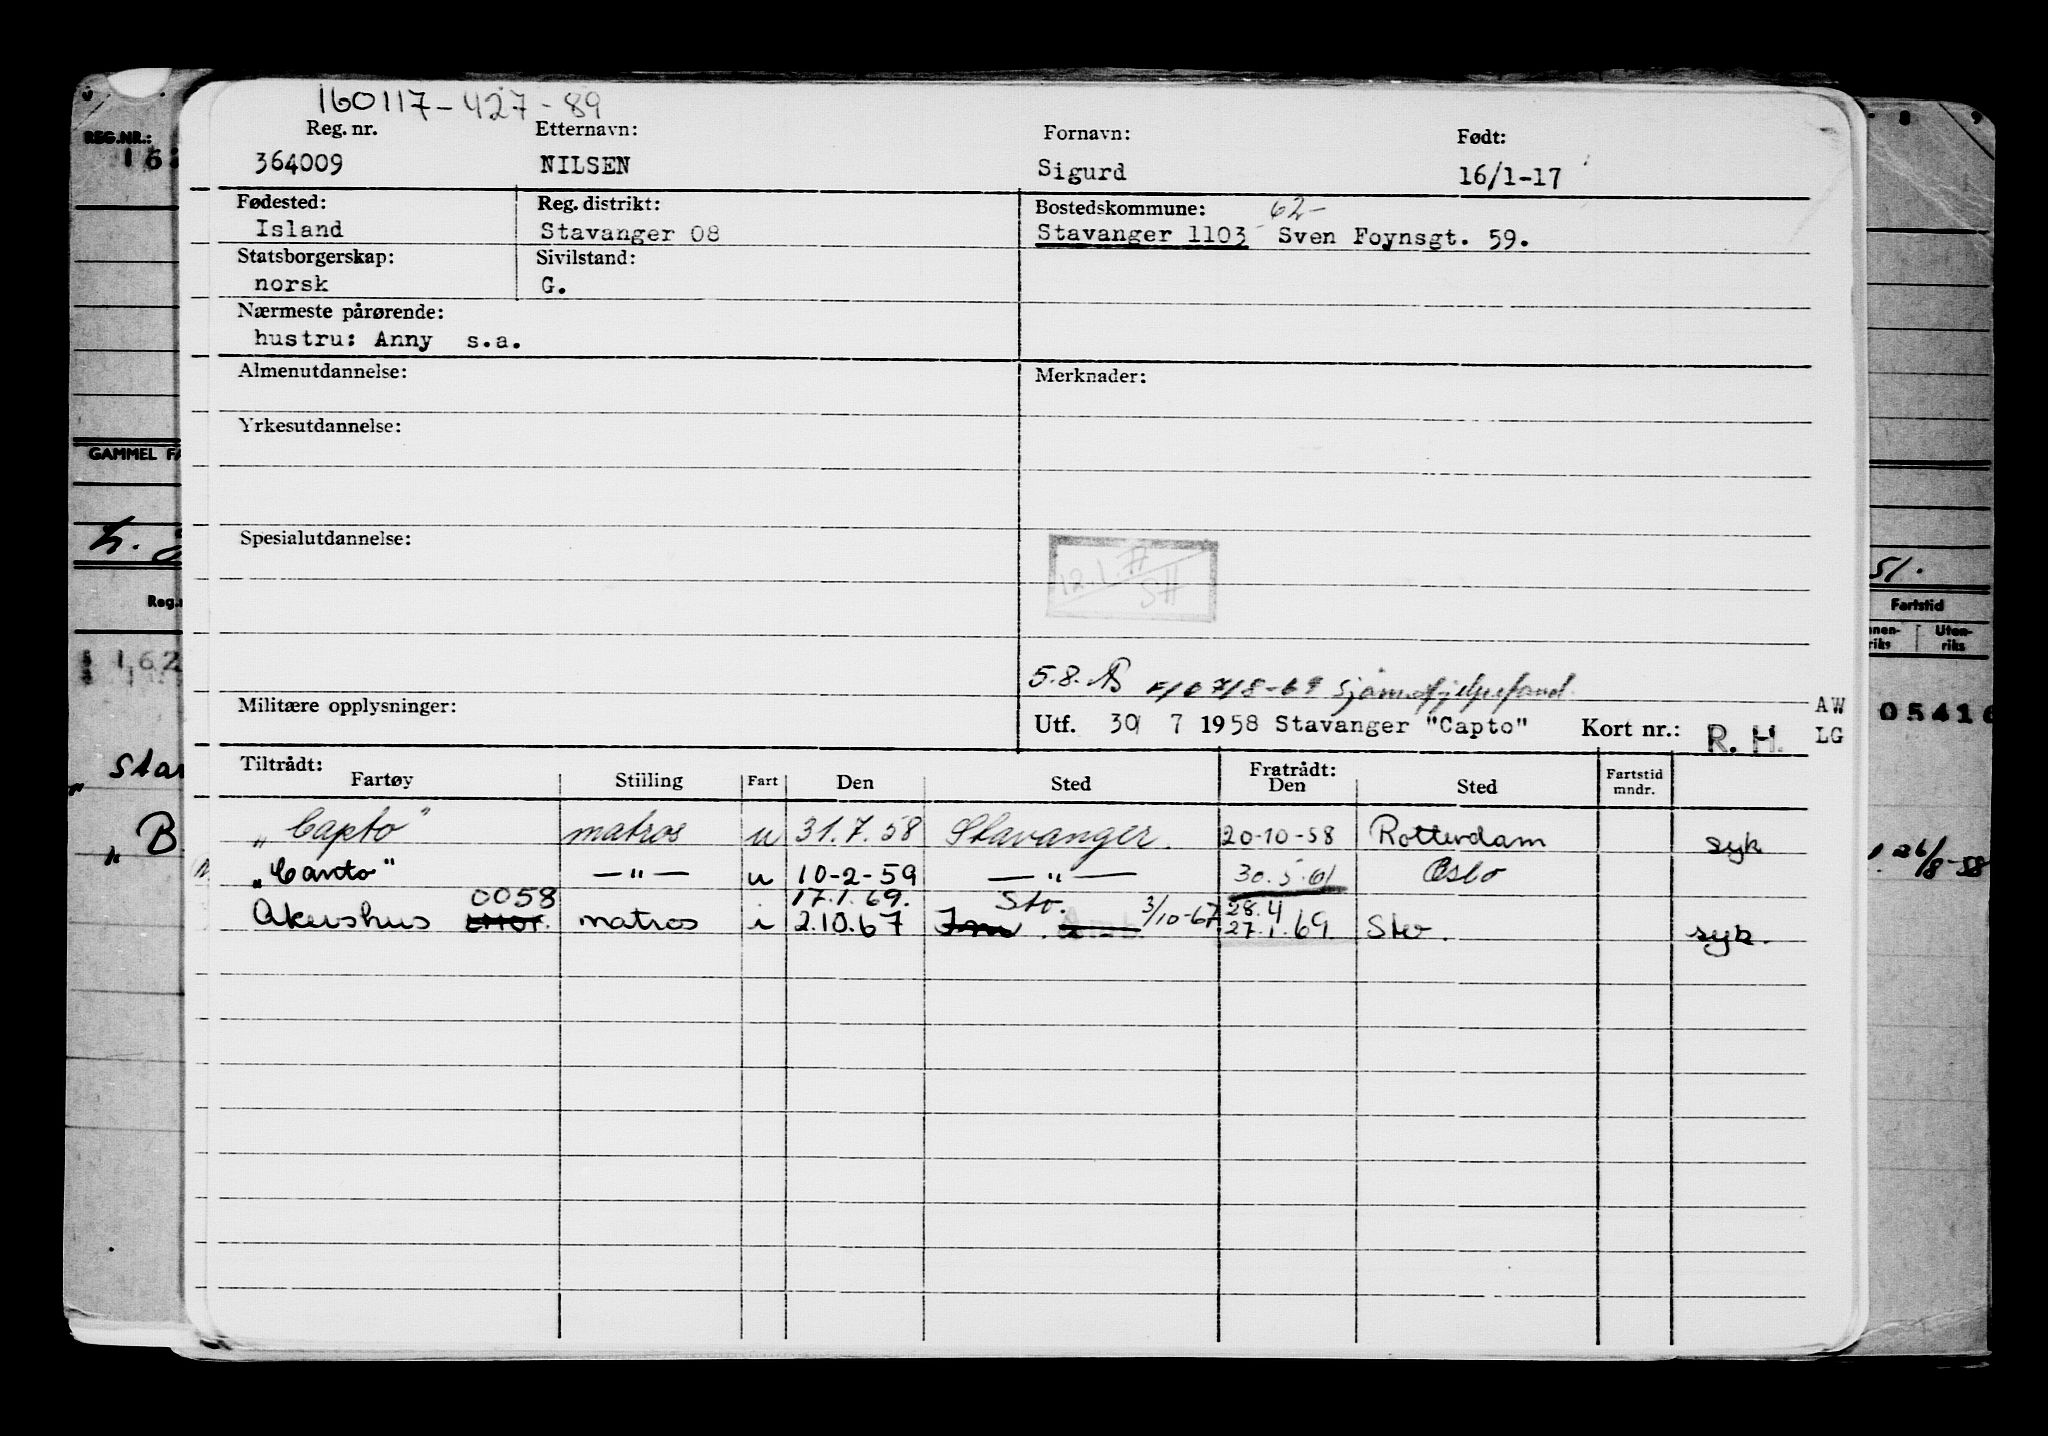 160117-427-89
Reg. nr. Etternavn: Fornavn: Født:
364009 NILSEN Sigurd 16/1-17
Fødested: Reg. distrikt: Bostedskommune: 62-
Island Stavanger 08 Stavanger 1103 Sven Foynsgt. 59.
Statsborgerskap: Sivilstand:
norsk G.
Nærmeste pårørende:
hustru: Anny s.a.
Almenutdannelse: Merknader:
Yrkesutdannelse:
Spesialutdannelse:
5.8. 7/8-69
Militære opplysninger:
Utf. 30 7 1958 Stavanger "Capto" Kort nr.: R. H.
AW
LG
Tiltrådt: Fratrådt:
Fartøy Stilling Fart Den Sted Den Sted Fartstid mndr.
"Capto" matros u 31.7.58 Stavanger. 20-10-58 Rotterdam syk
"Canto" — " — u 10-2-59 — " — 30.5.61 Oslo
0058 17.1.69. Stv. 28.4
Akershus matros i 2.10.67 3/10-67 27.1.69. Stv. syk.
REG.NR.:
GAMMEL
Reg.
162
B.
51.
Fartstid
Uten-
riks
05416
26/8-58